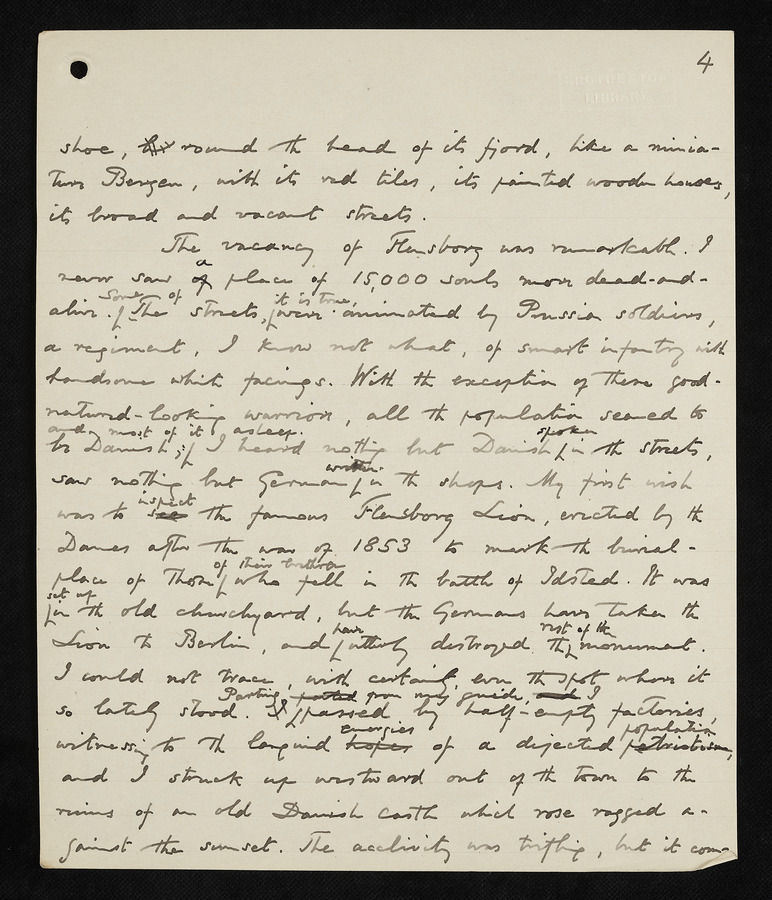 4
BROTHERTON
LIBRARY
shoe, round the head of its fjord, like a minia-
ture Bergen, with its red tiles, its painted wooden houses,
its broad and vacant streets.
The vacancy of Flensborg was remarkable. I
never saw of a place of 15,000 souls more dead-and-
alive. Some of The streets, it is true, were animated by Prussian soldiers,
a regiment, I know not what, of smart infantry with
handsome white facings. With the exception of these good-
natured-looking warriors, all the population seemed to
be Danish, and most of it asleep. I heard nothing but Danish spoken in the streets,
saw nothing but German written in the shops. My first wish
was to see inspect the famous Flensborg Lion, erected by the
Danes after the war of 1853 to mark the burial-
place of those of their brethren who fell in the battle of Idsted. It was
set up in the old churchyard, but the Germans have taken the
Lion to Berlin, and have utterly destroyed the rest of the monument.
I could not trace, with certainty, even the spot where it
so lately stood. Parting parted from my guide, and I I passed by half-empty factories,
witnessing to the languid hopes energies of a dejected patriotism population,
and I struck up westward out of the town to the
ruins of an old Danish castle which rose ragged a-
gainst the sunset. The acclivity was trifling, but it com-